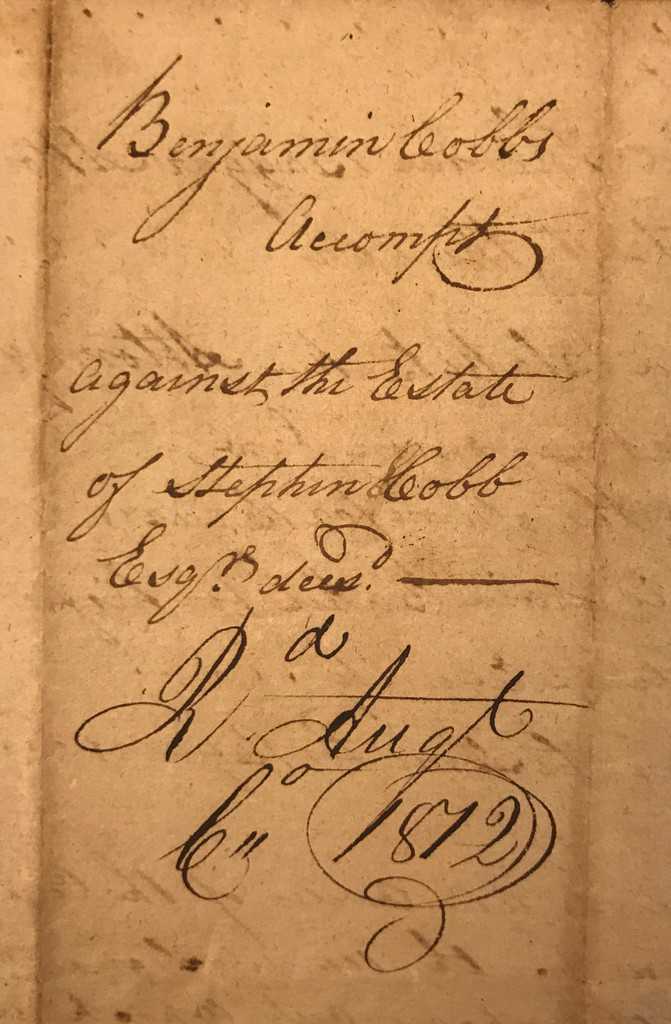 Benjamin Cobbs
Accompt
against the Estate
of Stephen Cobb
Esqr. decsd.
Rd. Augt
Co 1812